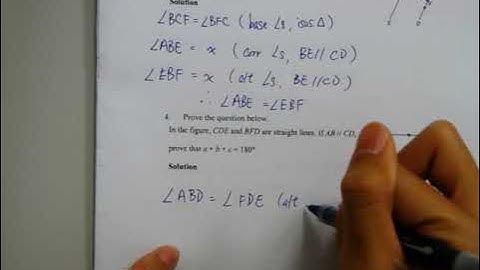 Solution
∠BCF = ∠BFC (base ∠s, isos Δ)
∠ABE = x (corr ∠s, BE // CD)
∠EBF = x (alt ∠s, BE // CD)
∴ ∠ABE = ∠EBF
4. Prove the question below.
In the figure, CDE and BFD are straight lines. If AB // CD,
prove that a + b + c = 180°
Solution
∠ABD = ∠FDE (alt